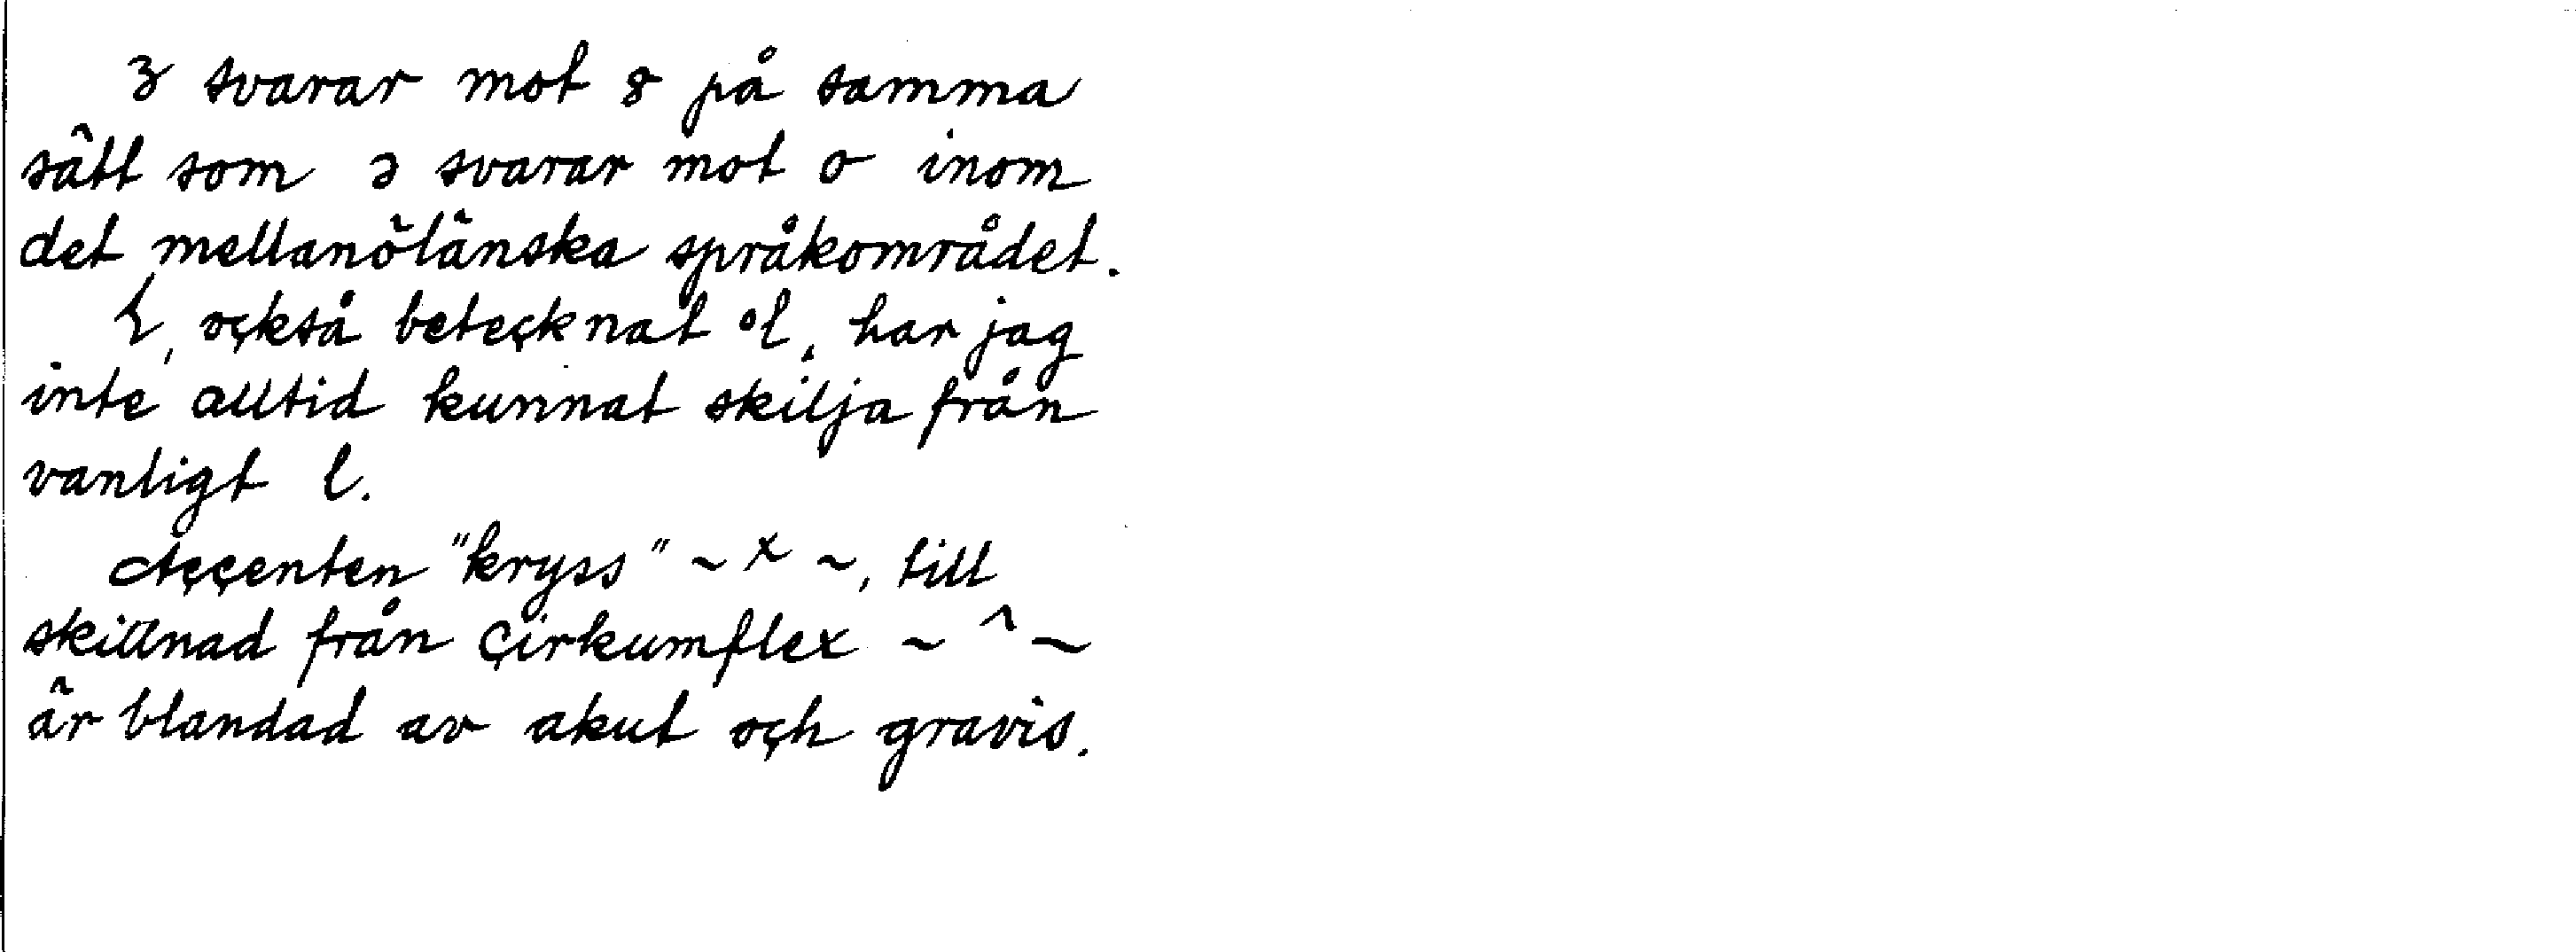 ꝫ svarar mot 8 på samma
sätt som ɔ svarar mot o inom
det mellanöländska språkområdet.
, också betecknat °l, har jag
inte alltid kunnat skilja från
vanligt l.
Accenten "kryss" ~ x ~, till
skillnad från cirkumflex ~ ^ ~
är blandad av akut och gravis.